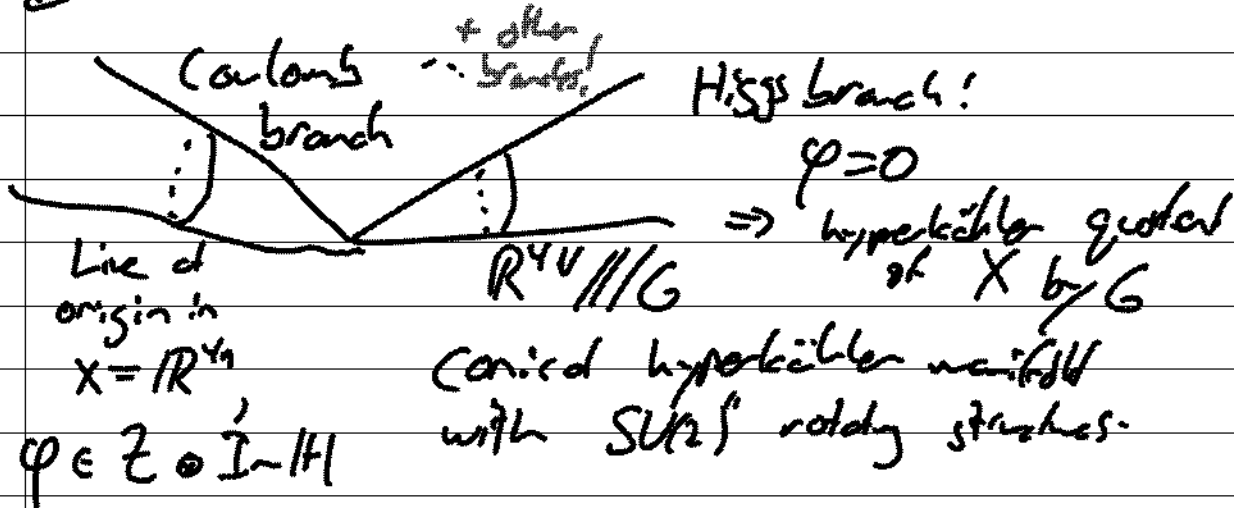 Coulomb
branch
+ other
branches!
Higgs branch!
φ=0
⇒ hyperkähler quotient
of X by G
Live at
origin in
X = ℝ⁴ⁿ
ℝ⁴ⁿ///G
φ ∈ ⊗ Im ℍ
Conical hyperkähler manifold
with SU(2) rotating structures.